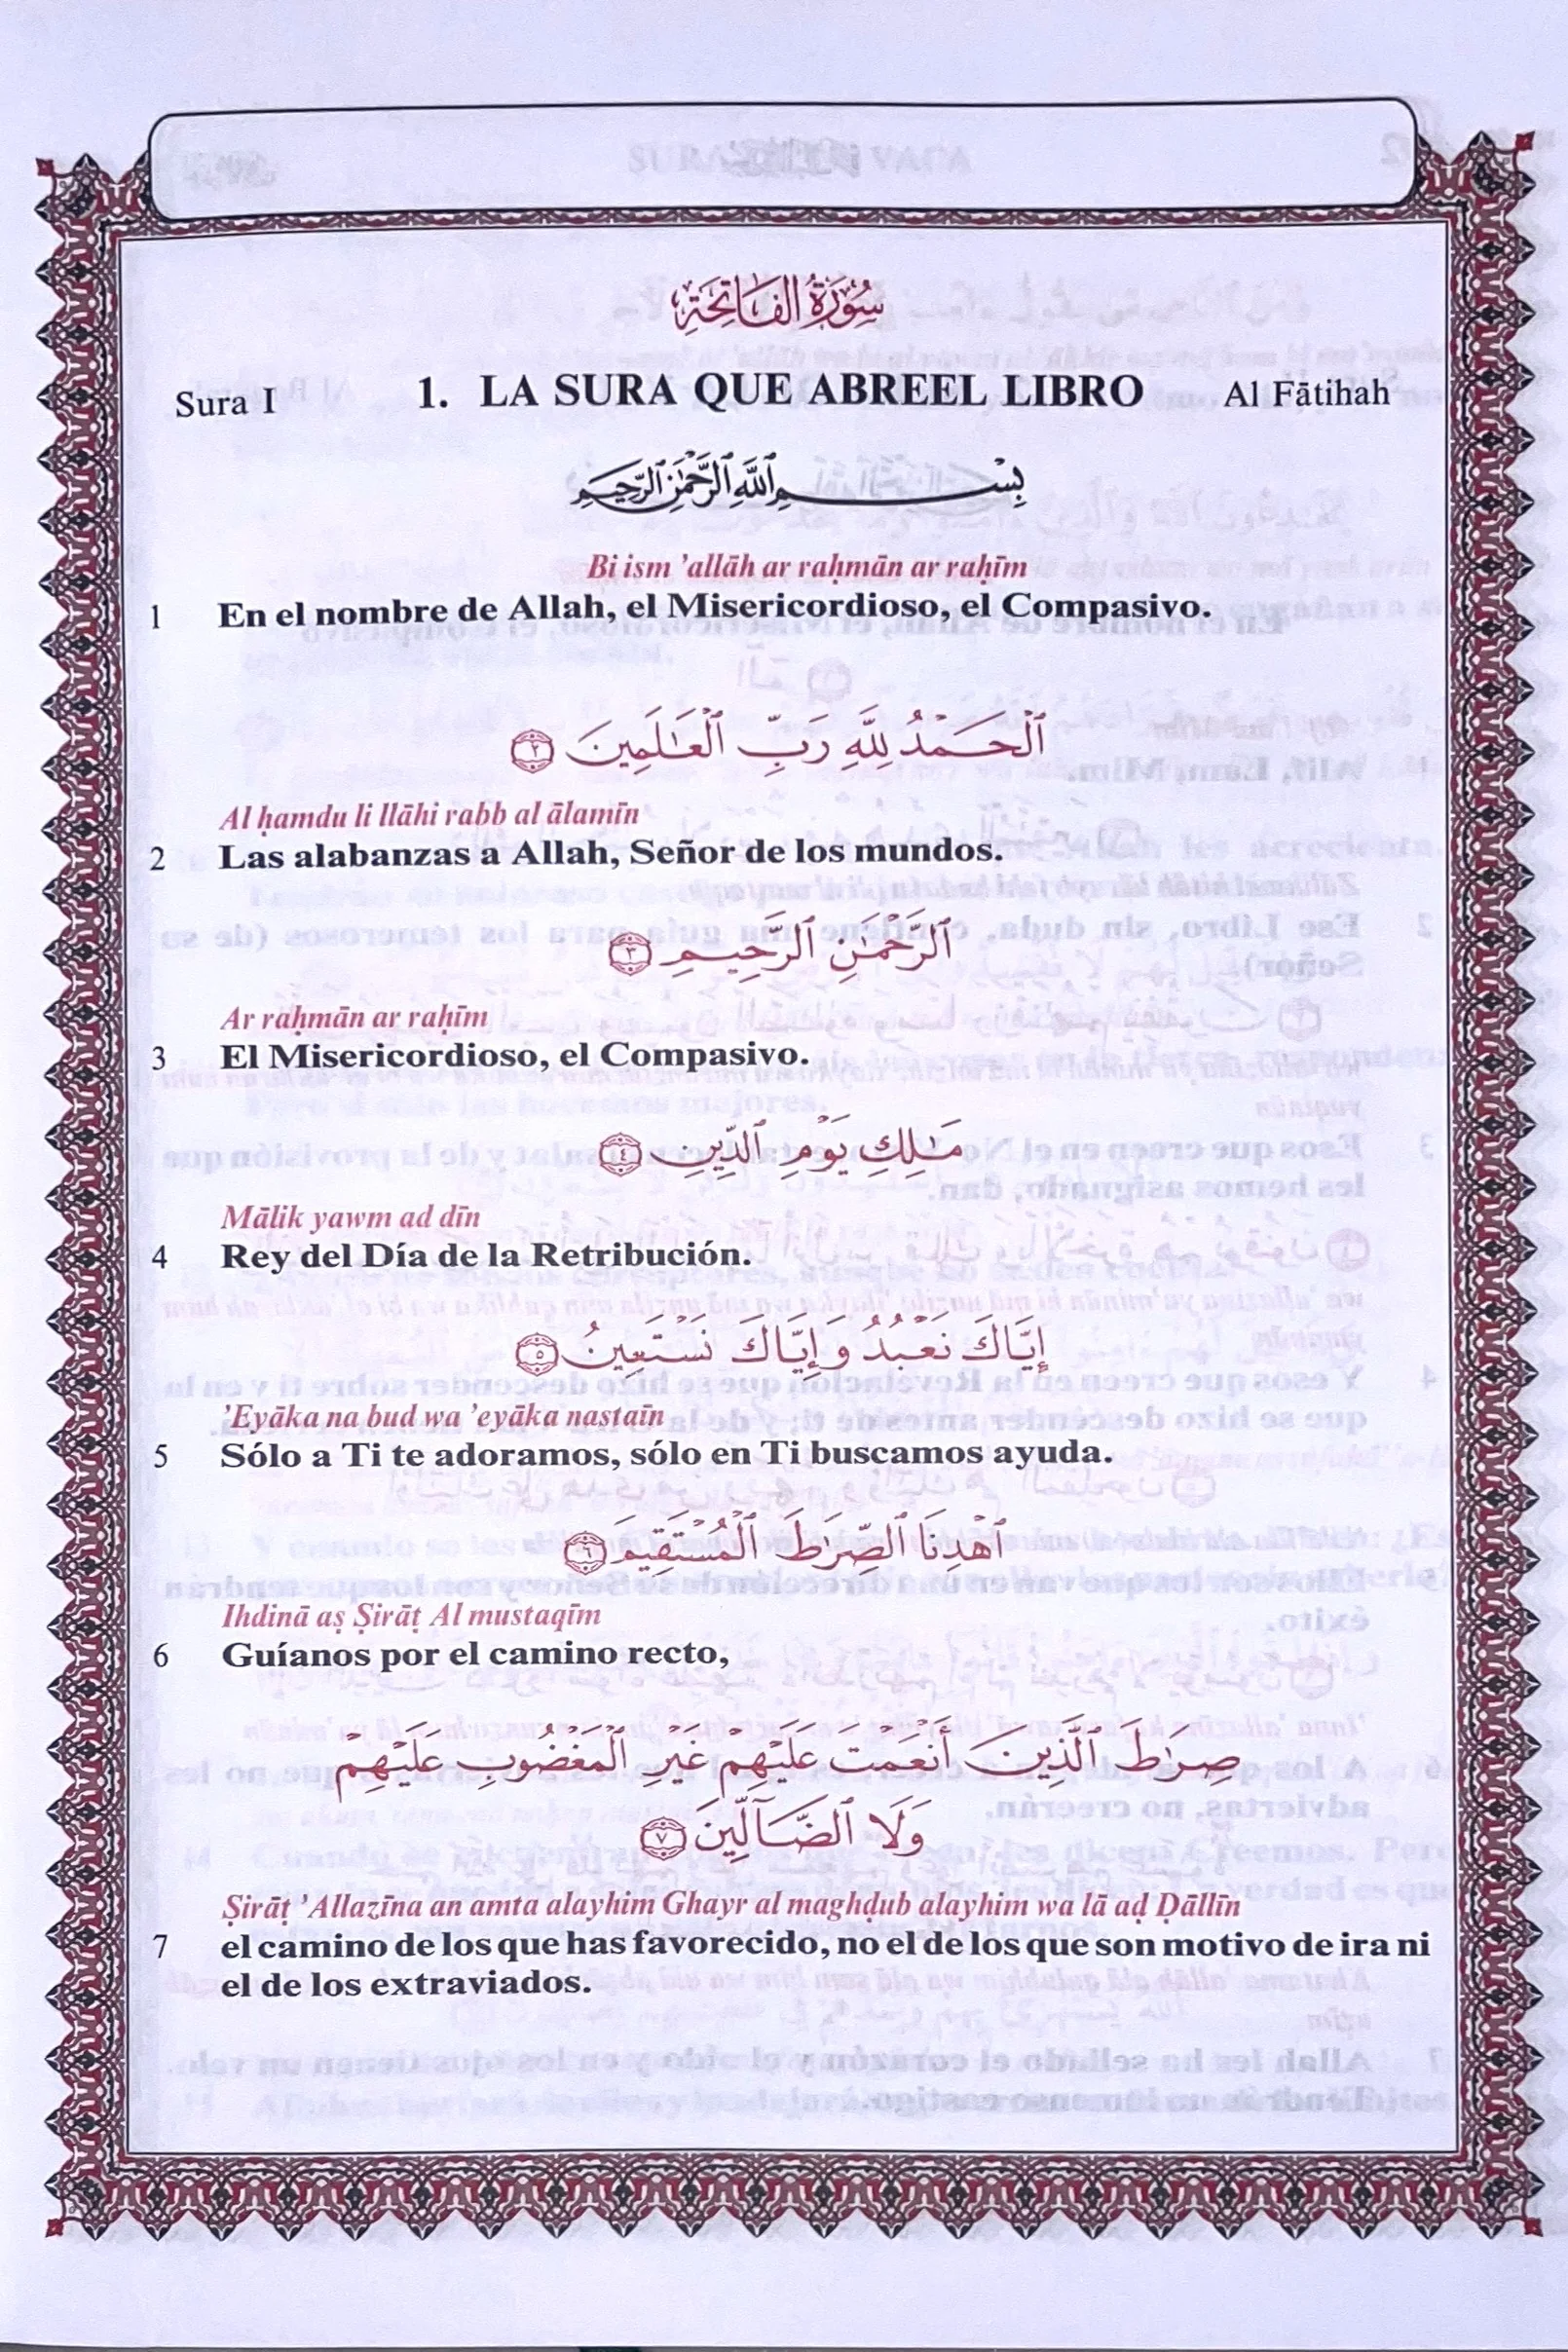 سُورَةُ الفَاتِحَةِ
Sura I 1. LA SURA QUE ABREEL LIBRO Al Fātihah
بِسْمِ ٱللَّهِ ٱلرَّحْمَٰنِ ٱلرَّحِيمِ
Bi ism ’allāh ar raḥmān ar raḥīm
1 En el nombre de Allah, el Misericordioso, el Compasivo.
ٱلْحَمْدُ لِلَّهِ رَبِّ ٱلْعَٰلَمِينَ ٢
Al ḥamdu li llāhi rabb al ālamīn
2 Las alabanzas a Allah, Señor de los mundos.
ٱلرَّحْمَٰنِ ٱلرَّحِيمِ ٣
Ar raḥmān ar raḥīm
3 El Misericordioso, el Compasivo.
مَٰلِكِ يَوْمِ ٱلدِّينِ ٤
Mālik yawm ad dīn
4 Rey del Día de la Retribución.
إِيَّاكَ نَعْبُدُ وَإِيَّاكَ نَسْتَعِينُ ٥
’Eyāka na bud wa ’eyāka nastaīn
5 Sólo a Ti te adoramos, sólo en Ti buscamos ayuda.
ٱهْدِنَا ٱلصِّرَٰطَ ٱلْمُسْتَقِيمَ ٦
Ihdinā aṣ Ṣirāṭ Al mustaqīm
6 Guíanos por el camino recto,
صِرَٰطَ ٱلَّذِينَ أَنْعَمْتَ عَلَيْهِمْ غَيْرِ ٱلْمَغْضُوبِ عَلَيْهِمْ
وَلَا ٱلضَّآلِّينَ ٧
Ṣirāṭ ’Allazīna an amta alayhim Ghayr al maghḍub alayhim wa lā aḍ Ḍāllīn
7 el camino de los que has favorecido, no el de los que son motivo de ira ni
el de los extraviados.